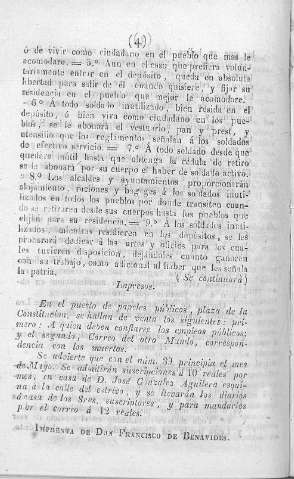 (4)
ó de vivir como ciudadano en el pueblo que mas le
acomodare. = 5.º Aun en el caso que prefiera volun-
tariamente entrar en el depósito, queda en absoluta
libertad para salir de él cuando quisiere, y fijar su
residencia en el pueblo que mejor le acomodare.
= 6.º A todo soldado inutilizado, bien resida en el
depósito, ó bien viva como ciudadano en los pue-
blos, se le abonará el vestuario, pan y prest, y
utensilio que los reglamentos señalan á los soldados
de efectivo servicio. = 7.º A todo soldado desde que
quedare inútil hasta que obtenga la cédula de retiro
se le abonará por su cuerpo el haber de soldado activo.
= 8.º Los alcaldes y ayuntamientos proporcionarán
alojamiento, raciones y bagages á los soldados inuti-
lizados en todos los pueblos por donde transiten cuan-
do se retiraren desde sus cuerpos hasta los pueblos que
elijan para su residencia. = 9.º A los soldados inuti-
lizados, mientras residieren en los depósitos, se les
procurará dedicar á las artes y oficios para los cua-
les tuvieren disposicion, dejándoles cuanto ganaren
con su trabajo, como adicional al haber que les señala
la patria. (Se continuará)
Impresos.
En el puesto de papeles públicos, plaza de la
Constitucion, se hallan de venta los siguientes: pri-
mero: A quien deben confiarse los empleos públicos;
y el segundo, Correo del otro Mundo, correspon-
dencia con los muertos.
Se advierte que con el núm. 39 principia el mes
de Mayo. Se admitirán suscripciones á 10 reales por
mes, en casa de D. José Gonzalez Aguilera esqui-
na á la calle del estrivo, y se llevarán los diarios
á casa de los Sres. suscriptores, y para mandarlos
por el correo á 12 reales.
Imprenta de Don Francisco de Benavides.